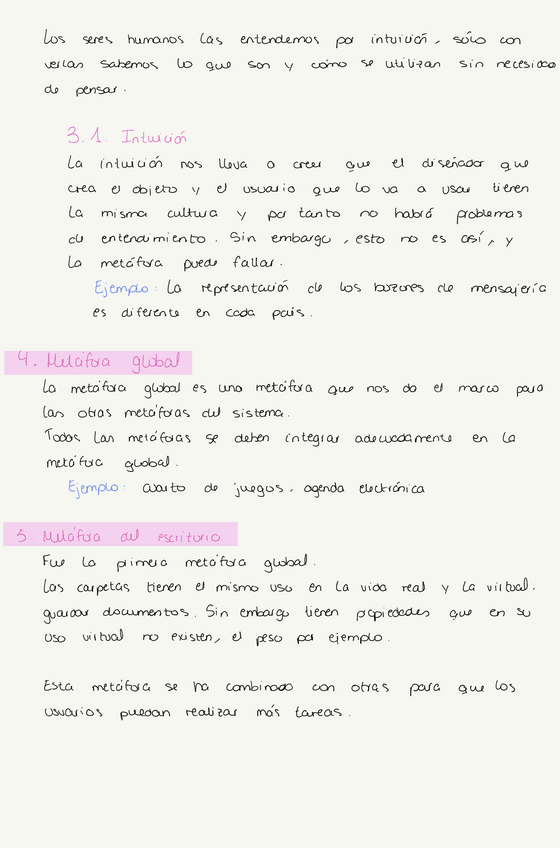 Los seres humanos las entendemos por intuición, sólo con
verlas sabemos lo que son y cómo se utilizan sin necesidad
de pensar.
3.1. Intuición
La intuición nos lleva a creer que el diseñador que
crea el objeto y el usuario que lo va a usar tienen
la misma cultura y por tanto no habrá problemas
de entendimiento. Sin embargo, esto no es así, y
la metáfora puede fallar.
Ejemplo: La representación de los buzones de mensajería
es diferente en cada país.
4. Metáfora global
La metáfora global es una metáfora que nos da el marco para
las otras metáforas del sistema.
Todas las metáforas se deben integrar adecuadamente en la
metáfora global.
Ejemplo: cuarto de juegos, agenda electrónica
5. Metáfora del escritorio
Fue la primera metáfora global.
Las carpetas tienen el mismo uso en la vida real y la virtual,
guardar documentos. Sin embargo tienen propiedades que en su
uso virtual no existen, el peso por ejemplo.
Esta metáfora se ha combinado con otras para que los
usuarios puedan realizar más tareas.